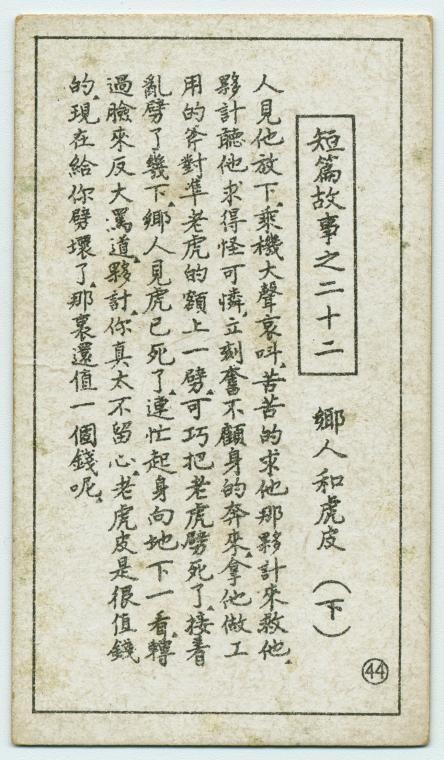 短篇故事之二十二
鄉人和虎皮 （下）
人見他放下、乘機大聲哀叫、苦苦的求他那夥計來救他、
夥計聽他求得怪可憐、立刻奮不顧身的奔來、拿他做工
用的斧對準老虎的額上一劈、可巧把老虎劈死了、接着
亂劈了幾下、鄉人見虎已死了、連忙起身向地下一看、轉
過臉來反大罵道、夥計、你真太不留心、老虎皮是很值錢
的、現在給你劈壞了、那裏還值一個錢呢、
44